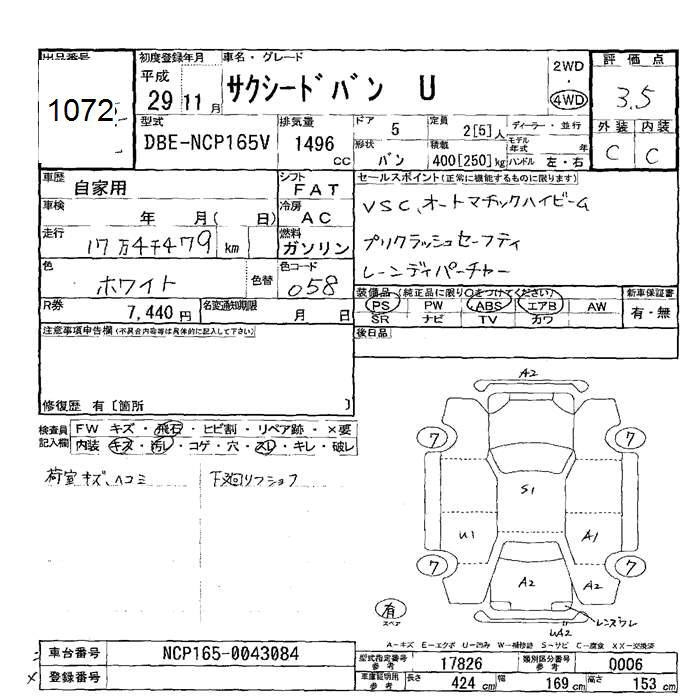 出品番号
1072
初度登録年月
平成
29 11月
車名・グレード
サクシードバン U
2WD
・
4WD
評価点
3.5
外装 内装
C C
型式
DBE-NCP165V
排気量
1496 cc
ドア 5
定員 2[5]人
ディーラー・並行
形状 バン
積載 400[250]kg
モデル年式 年
ハンドル 左・右
車歴 自家用
シフト FAT
車検 年 月( 日)
冷房 AC
走行 17万4千479 km
燃料 ガソリン
色 ホワイト
色替
色コード 058
R券 7,440円
名変通知期限 月 日
セールスポイント(正常に機能するものに限ります)
VSC、オートマチックハイビーム
プリクラッシュセーフティ
レーンディパーチャー
装備品(純正品に限り○をつけてください)
PS PW ABS エアB AW
SR ナビ TV カワ
新車保証書
有・無
後日品
注意事項申告欄(不具合内容等は具体的に記入して下さい)
修復歴 有〔箇所 〕
検査員記入欄
FW キズ・飛石・ヒビ割・リペア跡・×要
内装・キズ・汚レ・コゲ・穴・スレ・キレ・破レ
荷室キズ、ヘコミ
下廻りフショク
A2
7 7
S1
U1 A1
7 7
A2 A2
有
スペア
レンズワレ
UA2
A-キズ E-エクボ U-凹み W-補修跡 S-サビ C-腐食 XX-交換済
車台番号 NCP165-0043084
登録番号
型式指定番号参考 17826
類別区分番号参考 0006
車庫証明用参考 長さ 424 cm 幅 169 cm 高さ 153 cm